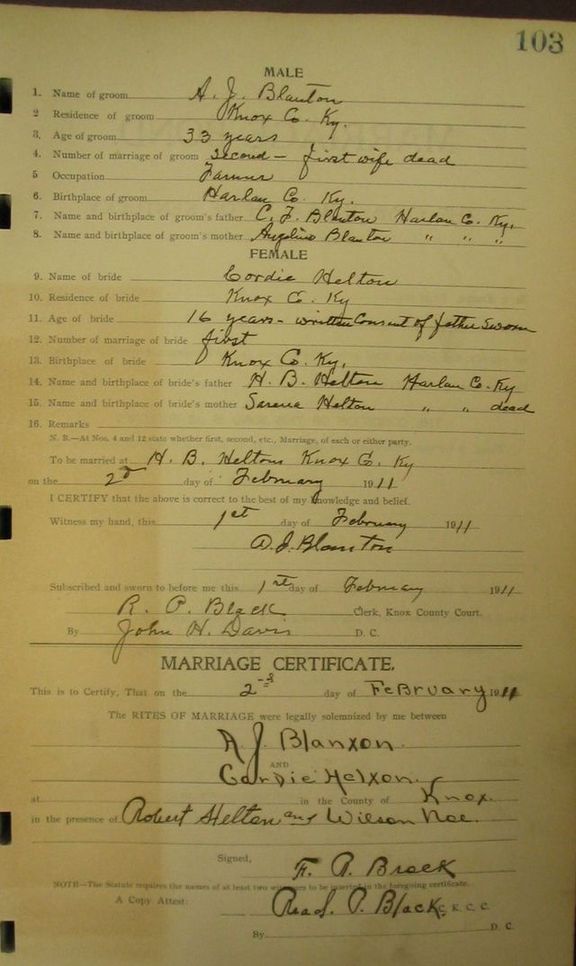 103
MALE
1. Name of groom A. J. Blanton
2 Residence of groom Knox Co. Ky.
3. Age of groom 33 years
4. Number of marriage of groom second - first wife dead
5 Occupation Farmer
6. Birthplace of groom Harlan Co. Ky.
7. Name and birthplace of groom's father C. F. Blanton Harlan Co. Ky.
8. Name and birthplace of groom's mother Blanton " " "
FEMALE
9. Name of bride Cordie Helton
10. Residence of bride Knox Co. Ky
11. Age of bride 16 years - written Consent of father Sworn
12. Number of marriage of bride first
13. Birthplace of bride Knox Co. Ky.
14. Name and birthplace of bride's father H. B. Helton Harlan Co. Ky
15. Name and birthplace of bride's mother Helton " " dead
16. Remarks
N. B.—At Nos. 4 and 12 state whether first, second, etc., Marriage, of each or either party.
To be married at H. B. Heltons Knox Co. Ky
on the 2d day of February 1911
I CERTIFY that the above is correct to the best of my knowledge and belief.
Witness my hand, this 1st day of February 1911
A. J. Blanton
Subscribed and sworn to before me this 1st day of February 1911
R. P. Black Clerk, Knox County Court.
By John H. Davis D. C.
MARRIAGE CERTIFICATE.
This is to Certify, That on the 2 day of February 1911
The RITES OF MARRIAGE were legally solemnized by me between
A J Blanxon.
AND
Cardie Helxon.
at in the County of Knox.
in the presence of Robert Helton and Wilson Noe.
Signed, F. P. Brock
NOTE—The Statute requires the names of at least two witnesses to be inserted in the foregoing certificate.
A Copy Attest: Read. P. Black C. K. C. C.
By D. C.